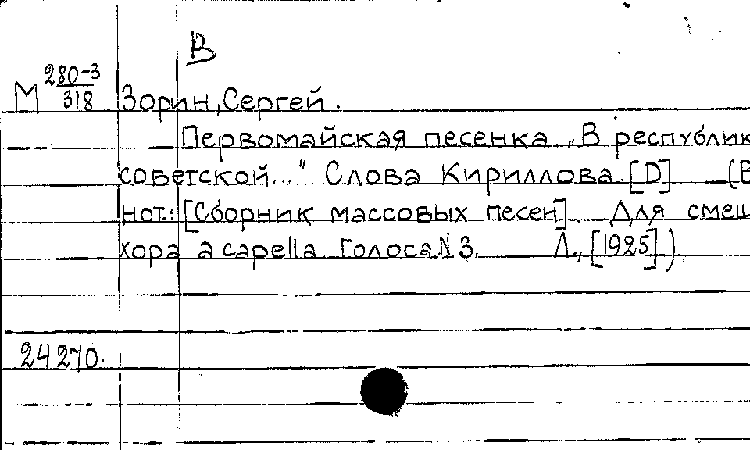 В
М 280-3/318 Зорин, Сергей.
Первомайская песенка „В республик
советской..." Слова Кириллова [D] (В
нот.: [Сборник массовых песен] Для смеш
хора a capella Голоса N 3. Л., [1925].)
24270.